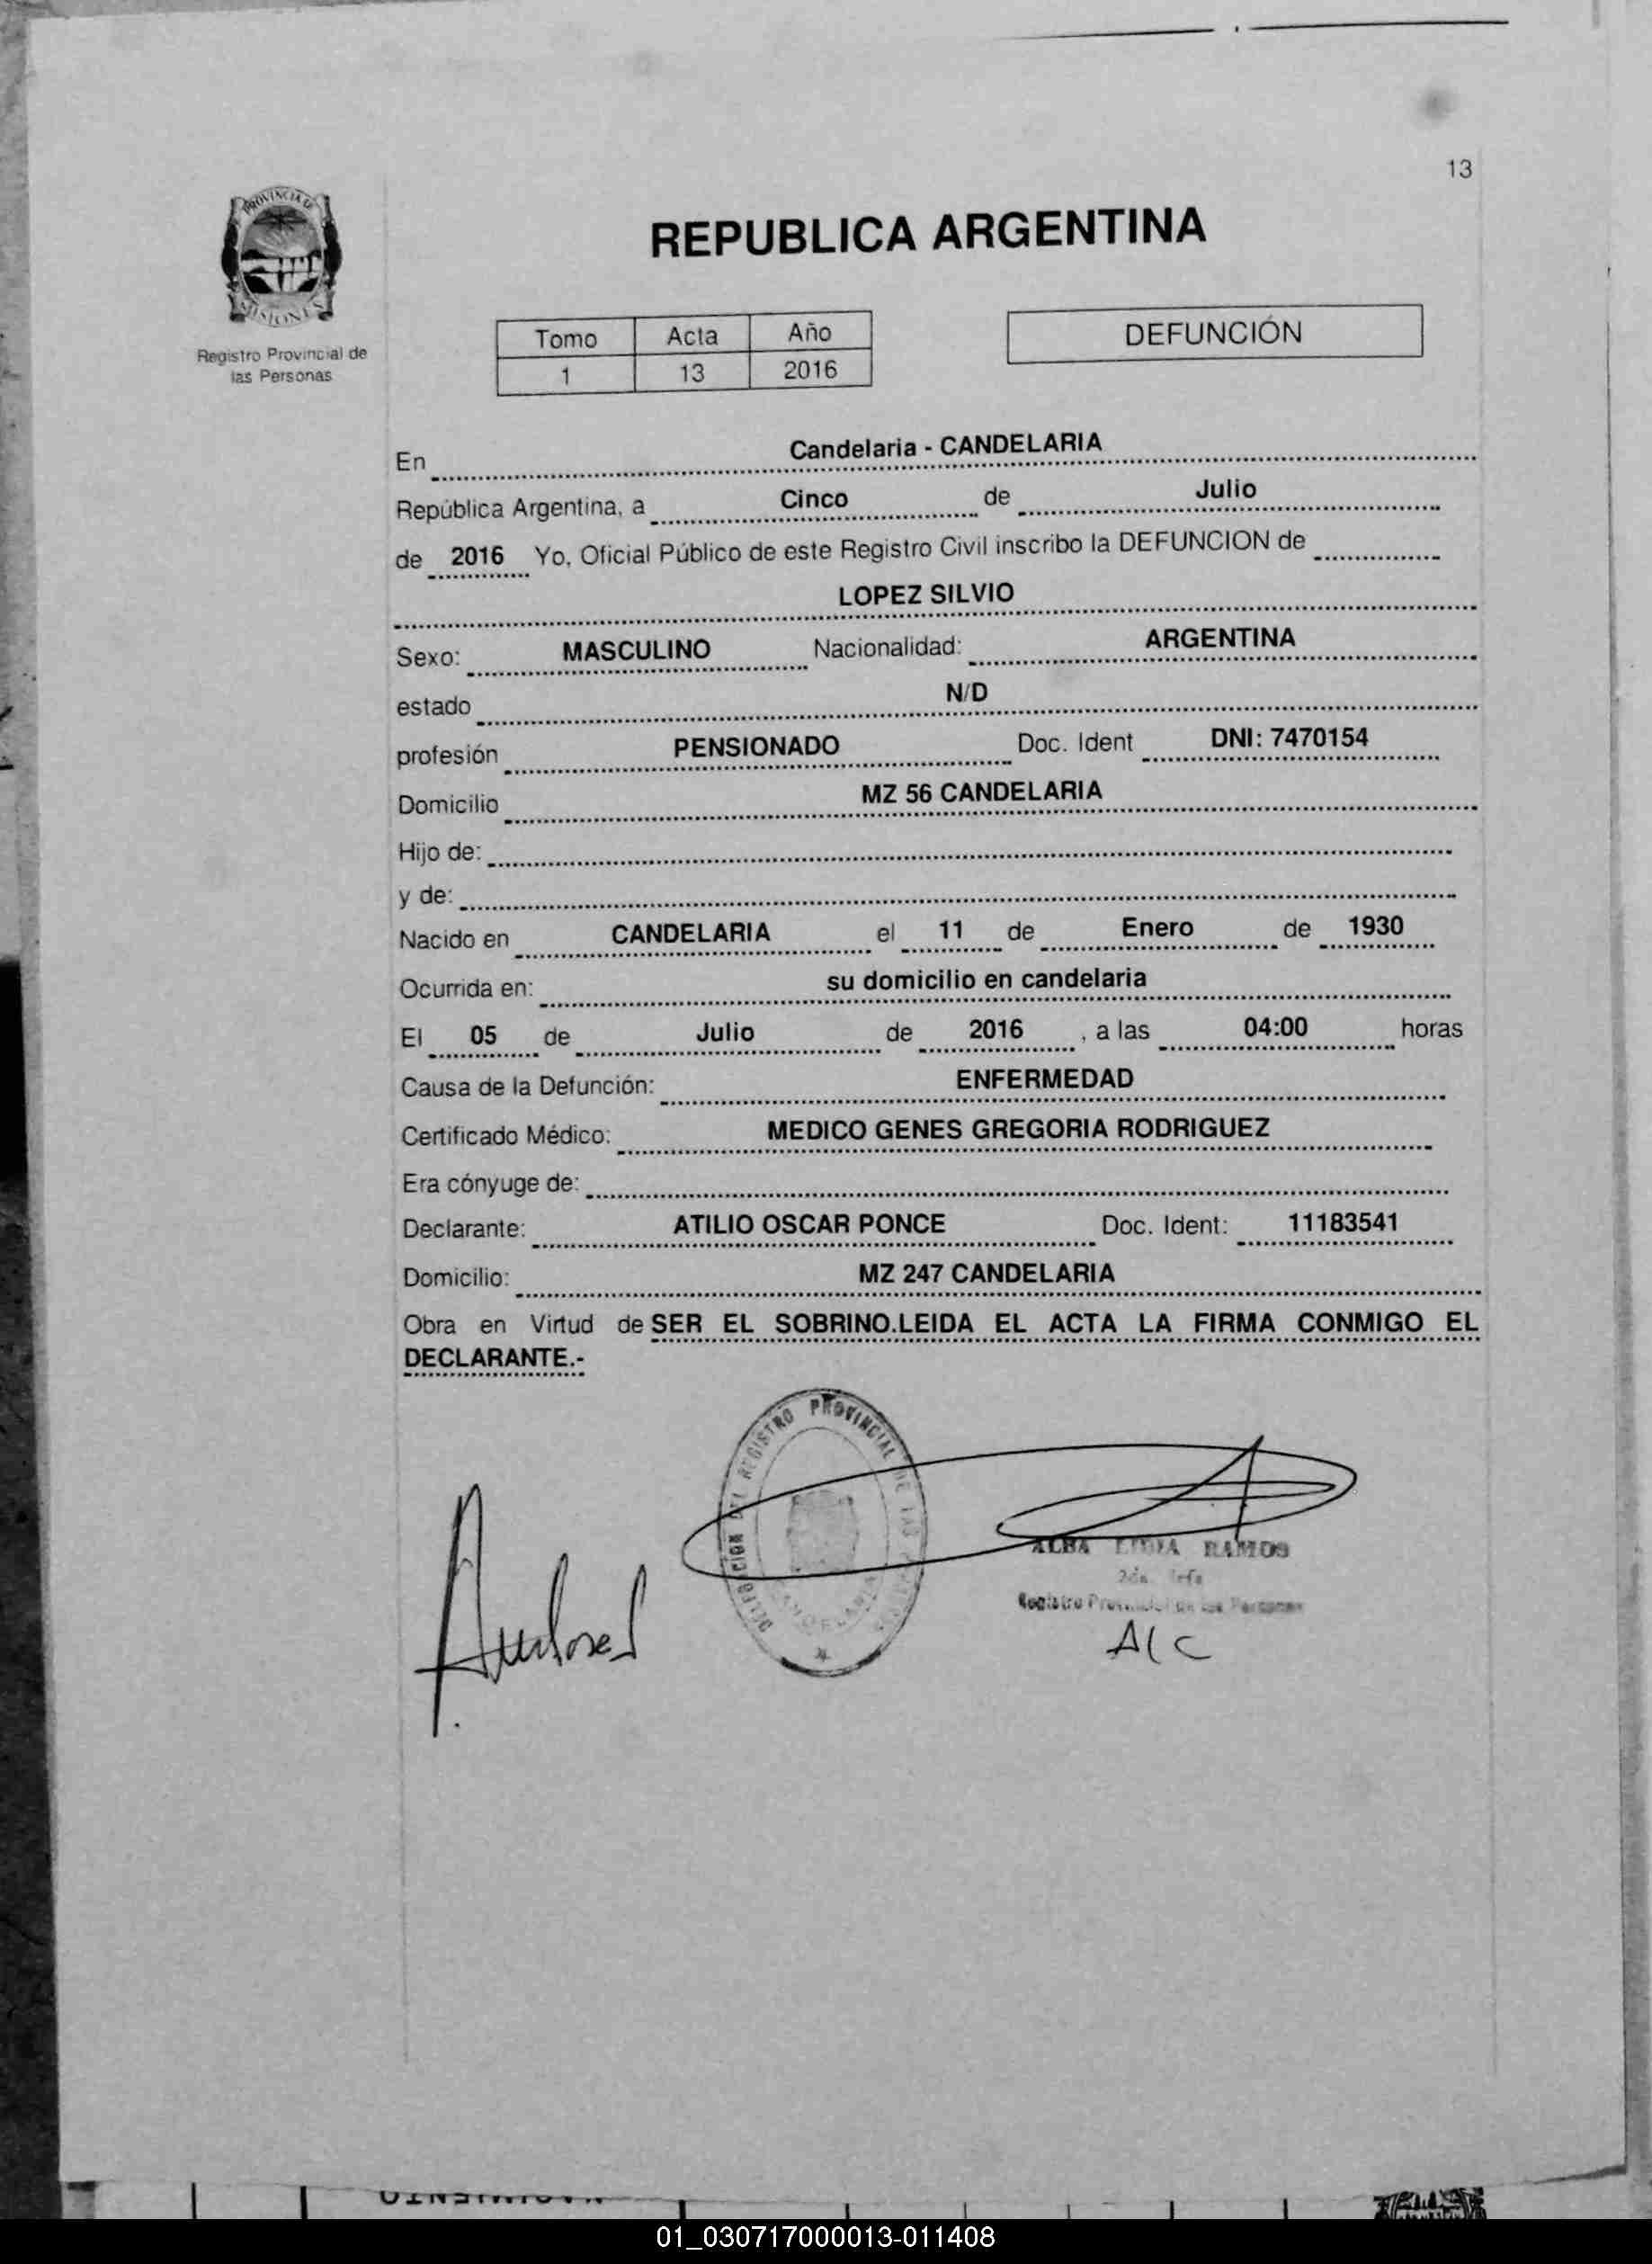 13
PROVINCIA DE
MISIONES
Registro Provincial de
las Personas
REPUBLICA ARGENTINA
Tomo Acta Año
1 13 2016
DEFUNCIÓN
En Candelaria - CANDELARIA
República Argentina, a Cinco de Julio
de 2016 Yo, Oficial Público de este Registro Civil inscribo la DEFUNCION de
LOPEZ SILVIO
Sexo: MASCULINO Nacionalidad: ARGENTINA
estado N/D
profesión PENSIONADO Doc. Ident DNI: 7470154
Domicilio MZ 56 CANDELARIA
Hijo de:
y de:
Nacido en CANDELARIA el 11 de Enero de 1930
Ocurrida en: su domicilio en candelaria
El 05 de Julio de 2016 , a las 04:00 horas
Causa de la Defunción: ENFERMEDAD
Certificado Médico: MEDICO GENES GREGORIA RODRIGUEZ
Era cónyuge de:
Declarante: ATILIO OSCAR PONCE Doc. Ident: 11183541
Domicilio: MZ 247 CANDELARIA
Obra en Virtud de SER EL SOBRINO.LEIDA EL ACTA LA FIRMA CONMIGO EL
DECLARANTE.-
DELEGACION DEL REGISTRO PROVINCIAL DE LAS
CANDELARIA
ALBA LIDIA RAMOS
2da. Jefa
Registro Provincial de las Personas
A/C
01_030717000013-011408